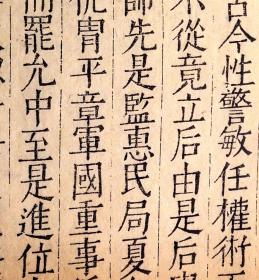 古今性警敏任權術
不從竟立后由是后
師先是監惠民局夏
侂胄平章軍國重事
而罷允中至是進位